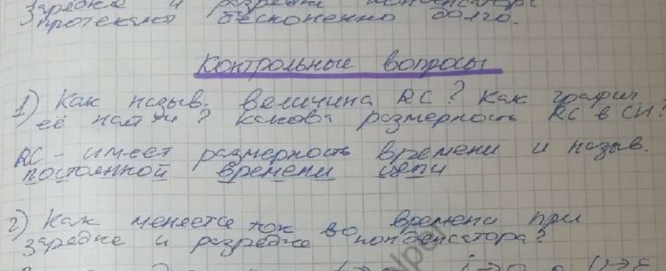 зарядке и разрядке конденсатора
протекают бесконечно долго.
Контрольные вопросы
1) Как назыв. величина RC? Как графич.
её найти? Какова размерность RC в СИ?
RC - имеет размерность времени и назыв.
постоянной времени цепи
2) Как меняется ток во времени при
зарядке и разрядке конденсатора?